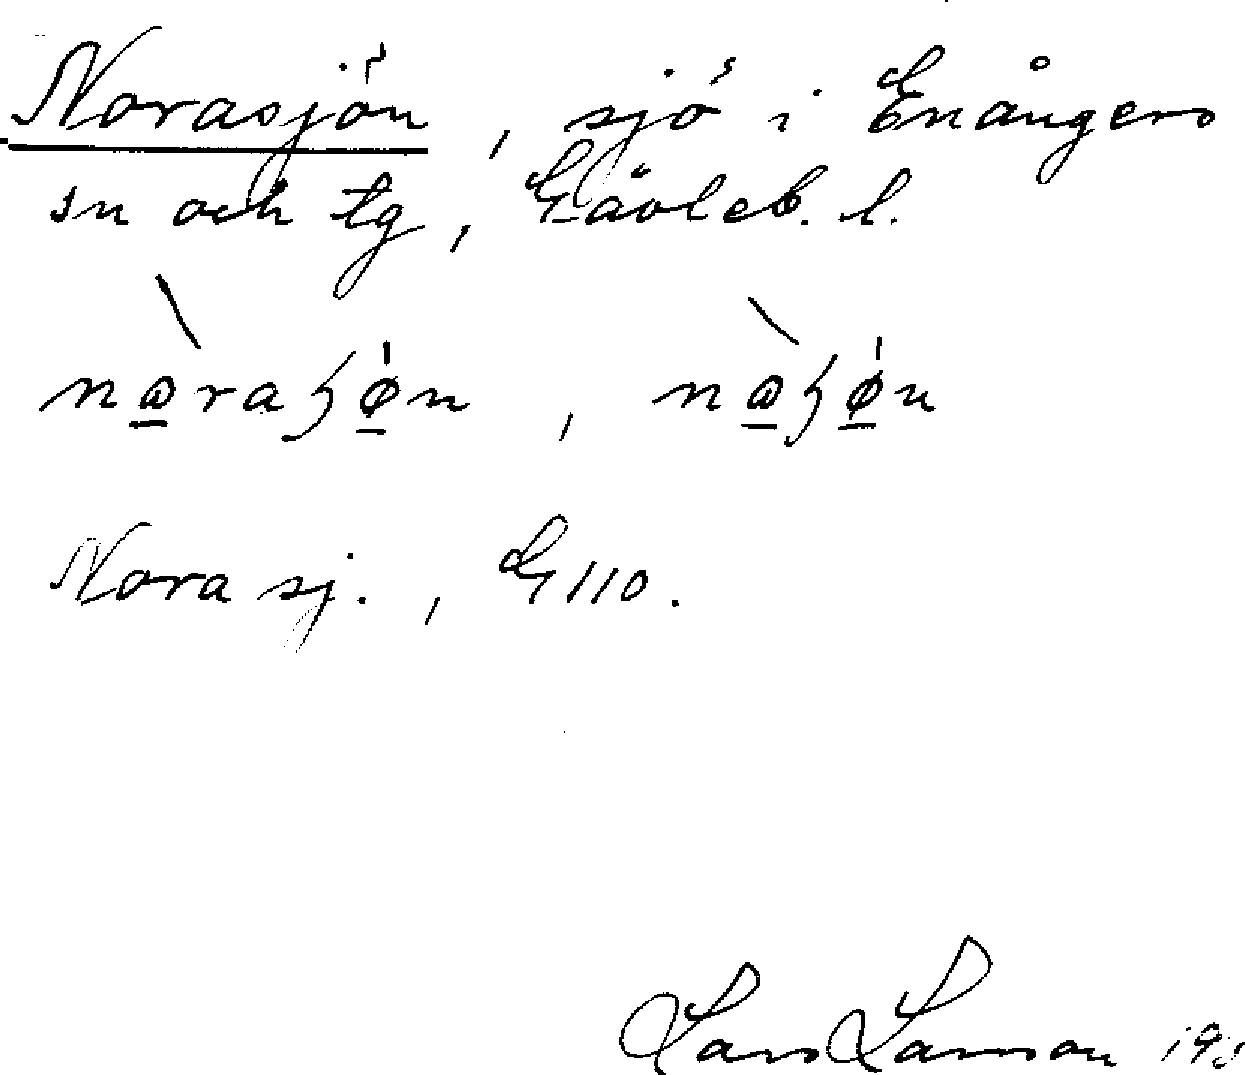 Norasjön, sjö i Enångers
sn och tg, Gävleb. l.
nɷ̠̀raʃǿ̠n, nɷ̠̀ʃǿ̠n
Nora sj., G 110.
Lars Larsson